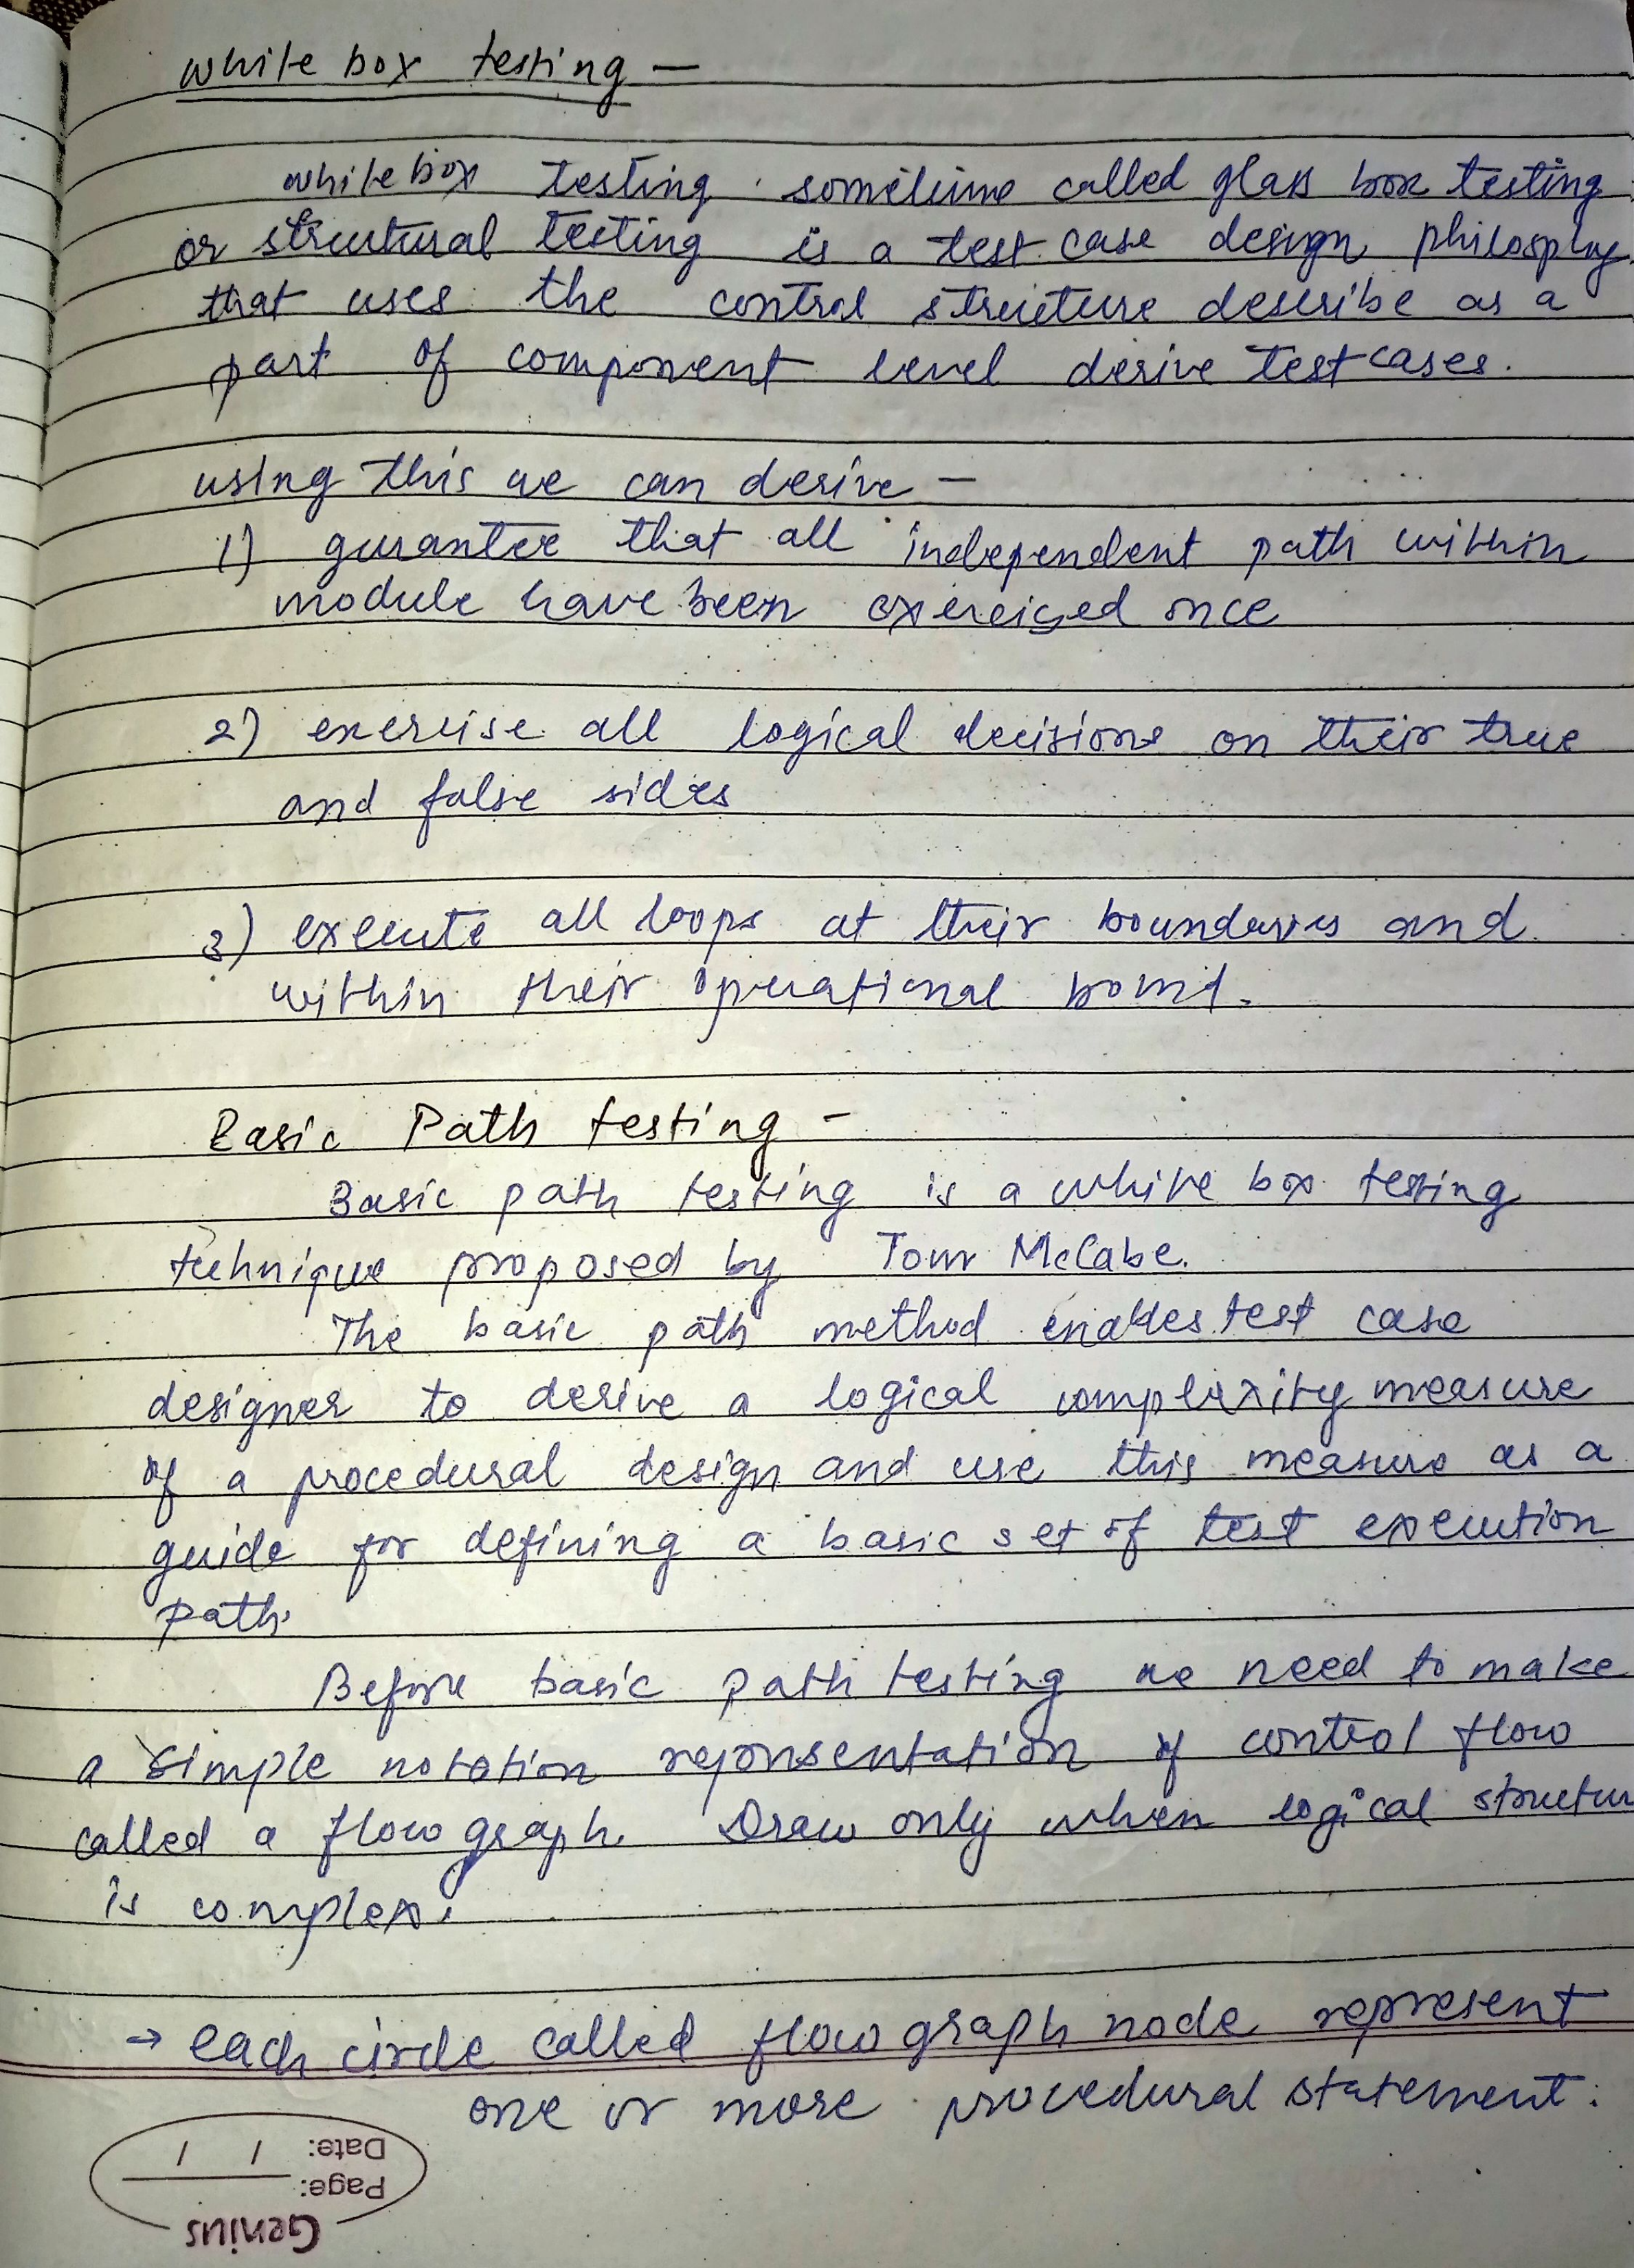 white box testing -
white box testing sometime called glass box testing
or structural testing is a test case design philosphy
that uses the control structure describe as a
part of component level derive test cases.
using this we can derive -
1) gurantee that all independent path within
module have been exercised once
2) exercise all logical decisions on their true
and false sides
3) execute all loops at their boundaries and
within their operational bound.
Basic Path testing -
Basic path testing is a white box testing
technique proposed by Tom McCabe.
The basic path method enables test case
designer to derive a logical complexity measure
of a procedural design and use this measure as a
guide for defining a basic set of test execution
path.
Before basic path testing we need to make
a simple notation reprsentation of control flow
called a flow graph. Draw only when logical structur
is complex.
→ each circle called flow graph node represent
one or more procedural statement.
Date: / /
Page:
Genius